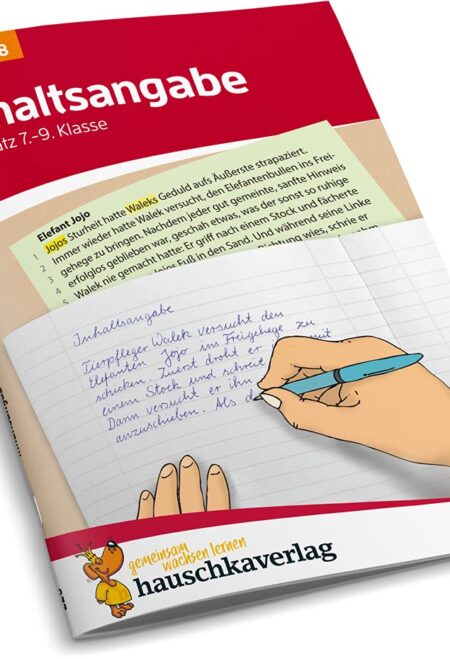 8
haltsangabe
tz 7.-9. Klasse
Elefant Jojo
1 Jojos Sturheit hatte Waleks Geduld aufs Äußerste strapaziert.
2 Immer wieder hatte Walek versucht, den Elefantenbullen ins Frei-
3 gehege zu bringen. Nachdem jeder gut gemeinte, sanfte Hinweis
4 erfolglos geblieben war, geschah etwas, was der sonst so ruhige
5 Walek nie gemacht hatte: Er griff nach einem Stock und fächerte
Fuß in den Sand. Und während seine Linke
Richtung wies, schrie er
Inhaltsangabe
Tierpfleger Walek versucht den
Elefanten Jojo ins Freigehege zu
schicken. Zuerst droht er mit
einem Stock und schreit
Dann versucht er ihn
anzuschieben. Als d
gemeinsam
wachsen lernen
hauschkaverlag